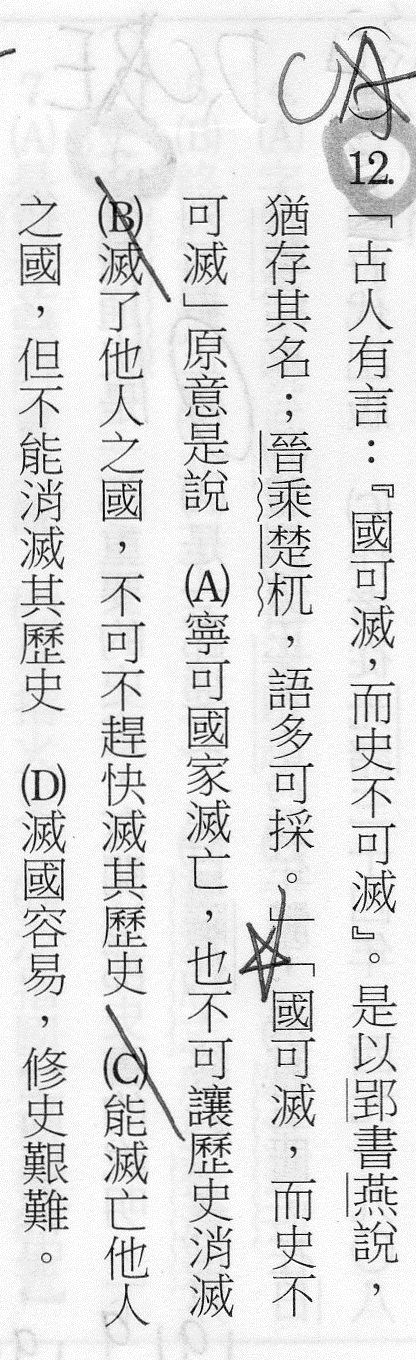 12.「古人有言：『國可滅，而史不可滅』。是以郢書燕說，
猶存其名；晉乘楚杌，語多可採。」「國可滅，而史不
可滅」原意是說　(A)寧可國家滅亡，也不可讓歷史消滅
(B)滅了他人之國，不可不趕快滅其歷史　(C)能滅亡他人
之國，但不能消滅其歷史　(D)滅國容易，修史艱難。